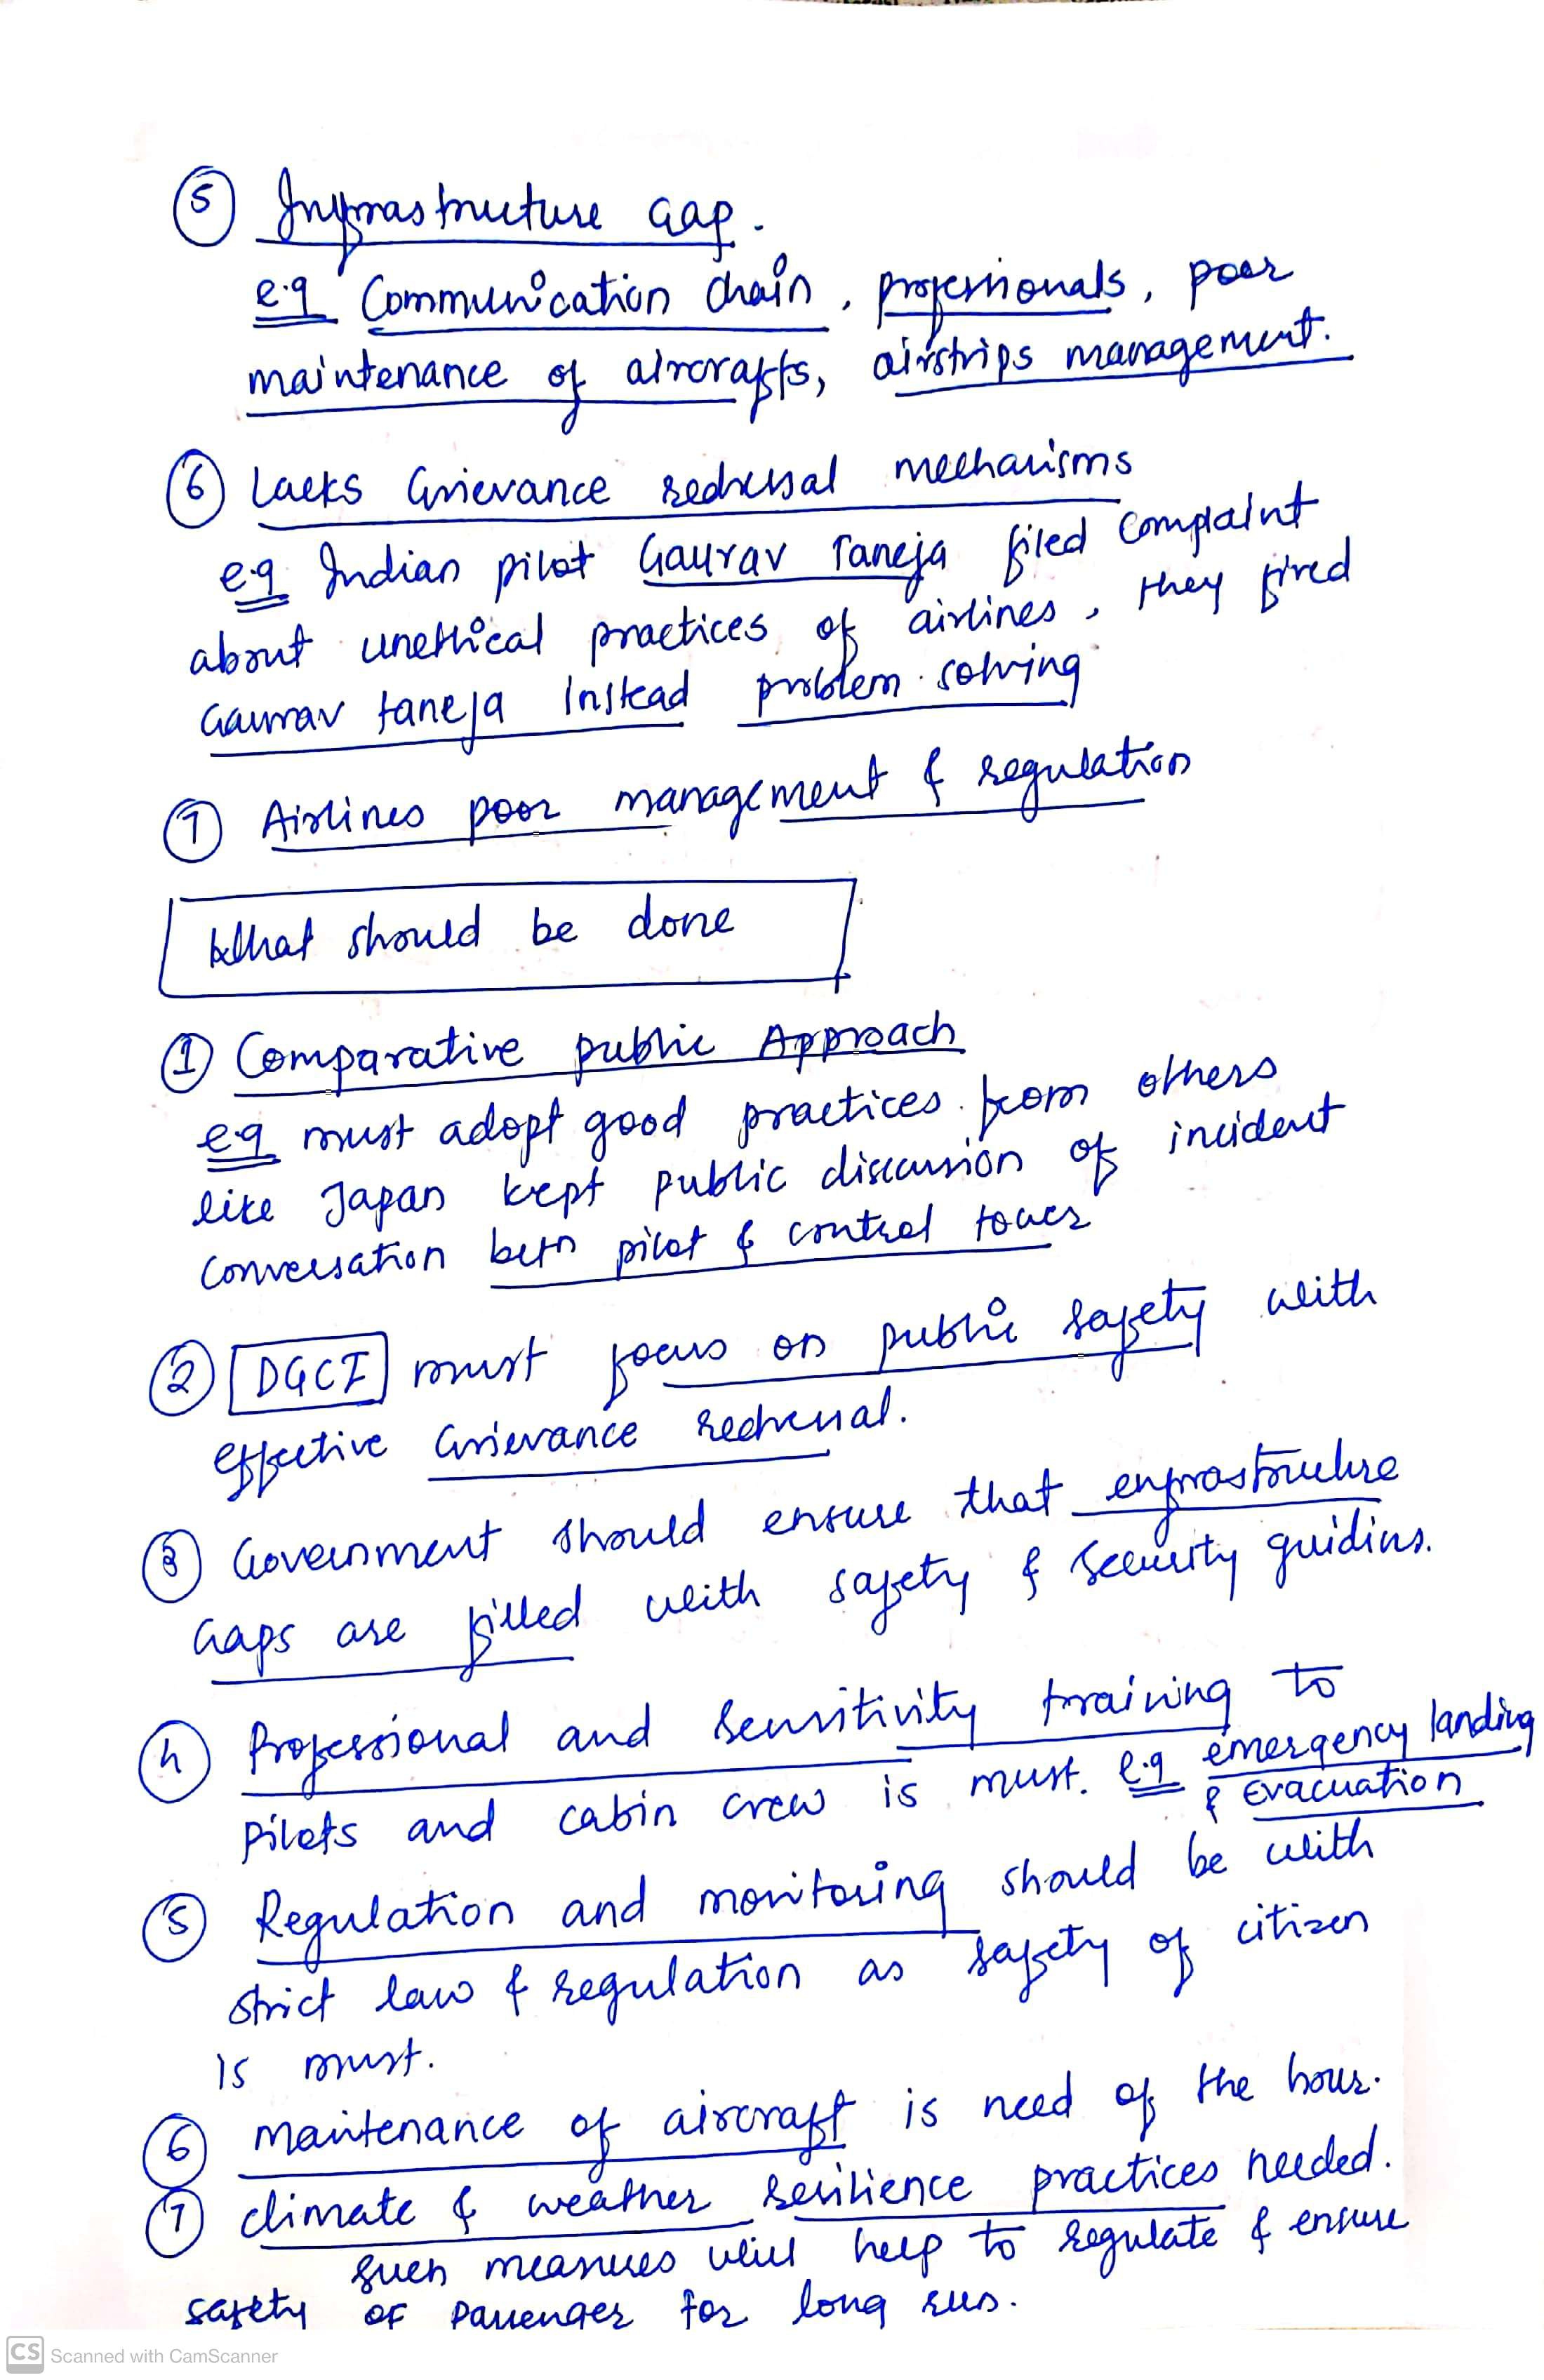 5 Infrastructure Gap.
e.g Communication chain, professionals, poor
maintenance of aircrafts, airstrips management.
6 Lacks Grievance redressal mechanisms
e.g Indian pilot Gaurav Taneja filed complaint
about unethical practices of airlines, they fired
Gaurav taneja instead problem solving
7 Airlines poor management & regulation
What should be done
1 Comparative public Approach
e.g must adopt good practices from others
like Japan kept public discussion of incident
conversation betn pilot & control tower
2 DGCI must focus on public safety with
effective Grievance redressal.
3 Government should ensure that enfrastructure
Gaps are filled with safety & security guidins.
4 Professional and sensitivity training to
pilots and cabin crew is must. e.g emergency landing
& Evacuation
5 Regulation and monitoring should be with
strict law & regulation as safety of citizen
is must.
6 maintenance of aircraft is need of the hour.
7 climate & weather resilience practices needed.
such measures will help to regulate & ensure
safety of passenger for long run.
CS Scanned with CamScanner